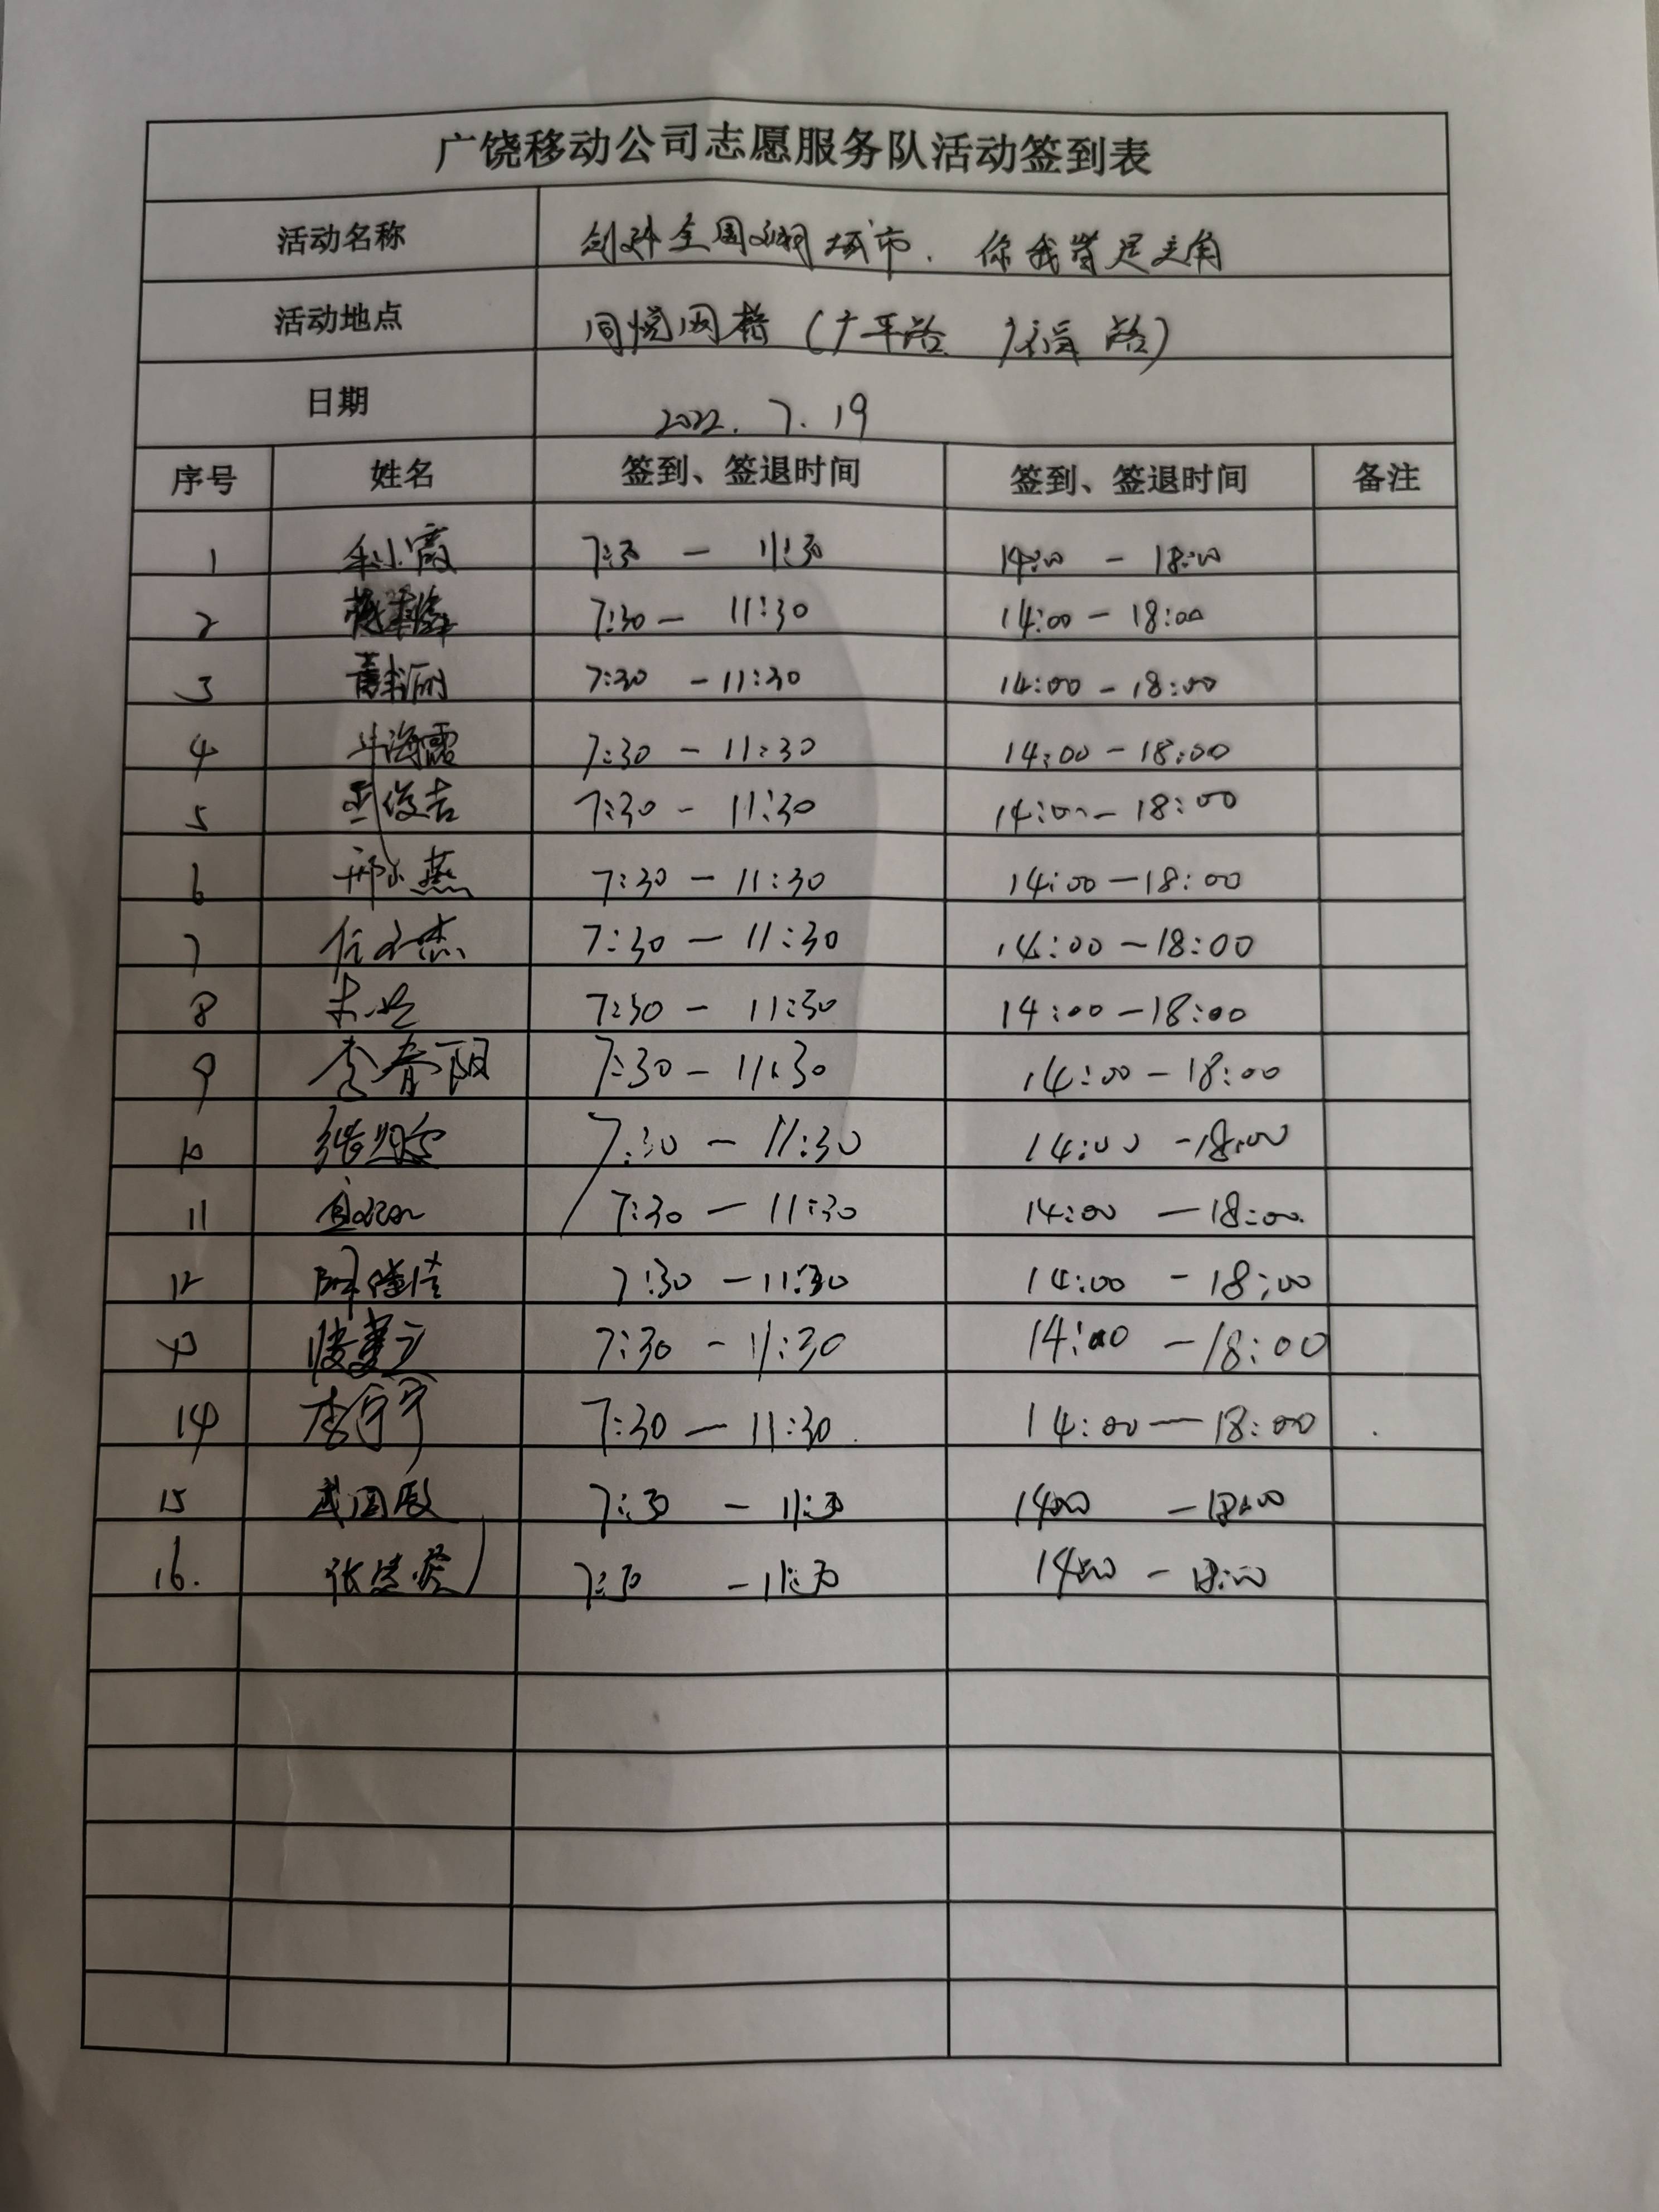 广饶移动公司志愿服务队活动签到表
活动名称 创建全国文明城市、你我皆是主角
活动地点 同悦网格(广平路 广福路)
日期 2022.7.19
序号 姓名 签到、签退时间 签到、签退时间 备注
1 7:30 — 11:30 14:00 — 18:00
2 7:30 — 11:30 14:00 — 18:00
3 7:30 — 11:30 14:00 — 18:00
4 海霞 7:30 — 11:30 14:00 — 18:00
5 俊吉 7:30 — 11:30 14:00 — 18:00
6 邢小燕 7:30 — 11:30 14:00 — 18:00
7 任文杰 7:30 — 11:30 14:00 — 18:00
8 7:30 — 11:30 14:00 — 18:00
9 李春阳 7:30 — 11:30 14:00 — 18:00
10 7:30 — 11:30 14:00 — 18:00
11 7:30 — 11:30 14:00 — 18:00
12 7:30 — 11:30 14:00 — 18:00
13 7:30 — 11:30 14:00 — 18:00
14 李宁宁 7:30 — 11:30 14:00 — 18:00
15 武国殿 7:30 — 11:30 14:00 — 18:00
16. 7:30 — 11:30 14:00 — 18:00